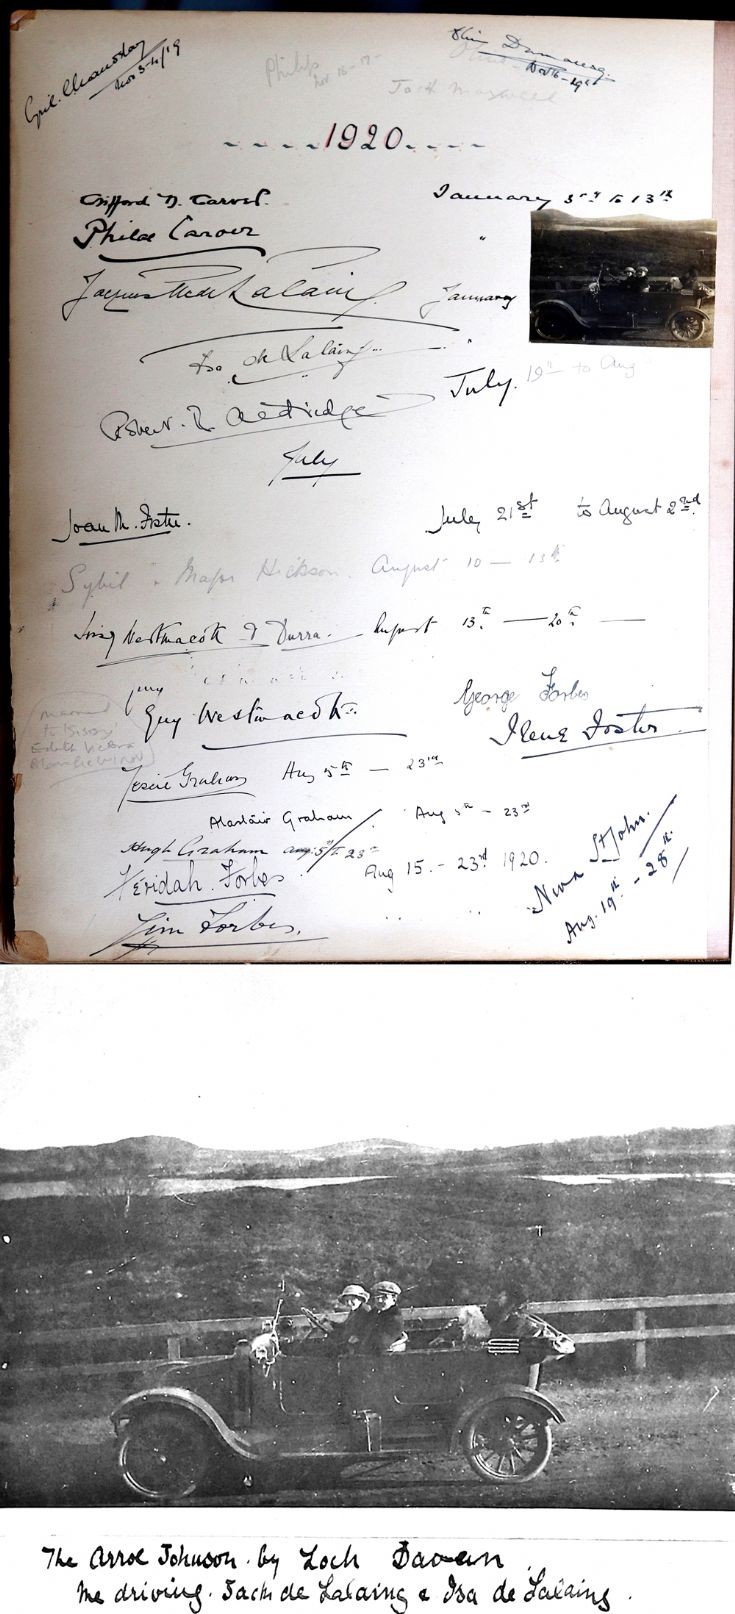 Cyril. Chanotray
Nov 3-4/19
Philip
Nov 16-17-
Nov 6-19
Jack Maxwell
1920
Clifford D. Carver.
January 3rd to 13th
Philae Carver
"
Jacques de Lalaing.
January
Isa de Lalaing
"
Robert. R. Aldridge
July. 19th to Aug
July
Joan M. Foster.
July 21st to August 2nd.
Sybil & Major Hickson. August 10 — 13th
Westmacott & Durra. August 13th — 20th —
Guy
Guy Westmacott.
George Forbes
Irene Foster
married
to
Edith Victoria
Jessie Graham Aug 5th — 23rd
Alastair Graham Aug 5th - 23rd
Hugh Graham Aug. 5th to 23rd
Veridah. Forbes
Aug 15. - 23rd 1920.
Jim Forbes.
" "
Nina St John.
Aug. 19th - 28th.
The Arrol Johnson. by Loch Davan
Me driving. Jack de Lalaing & Isa de Lalaing.